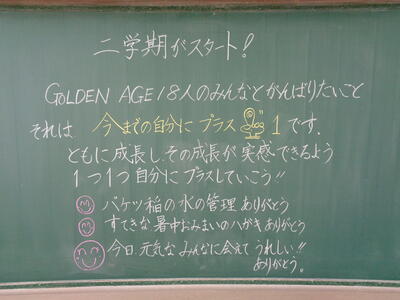 二学期がスタート!
GOLDEN AGE 18人のみんなとがんばりたいこと
それは 今までの自分に プラス 1 です.
ともに成長し.その成長が 実感できるよう
1つ1つ自分にプラスしていこう!!
バケツ稲の水の管理 ありがとう
すてきな暑中おみまいのハガキ ありがとう
今日.元気な みんなに会えて うれしい!!
ありがとう。